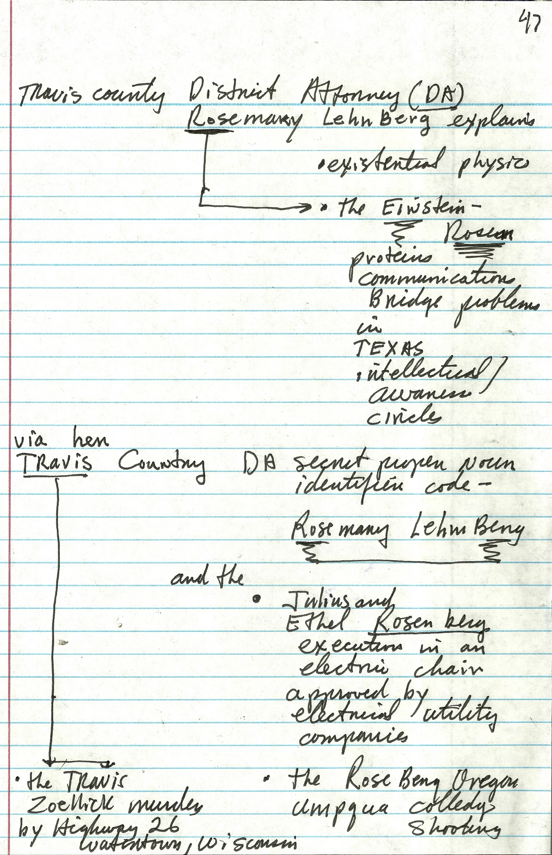 47
Travis county District Attorney (DA)
Rosemary Lehn Berg explains
• existential physics
• the Einstein-
Rosen
proteins
communications
Bridge problems
in
TEXAS
intellectual/
awarness
circles
via her
TRAVIS Country DA secret proper noun
identifier code-
Rosemary Lehm Berg
and the
• Julius and
Ethel Rosen berg
execution in an
electric chain
approved by
electrical utility
companies
• the TRAVIS
Zoellick murder
by Highway 26
watertown, Wisconsin
• the Rose Berg Oregon
umpqua colledge
shooting